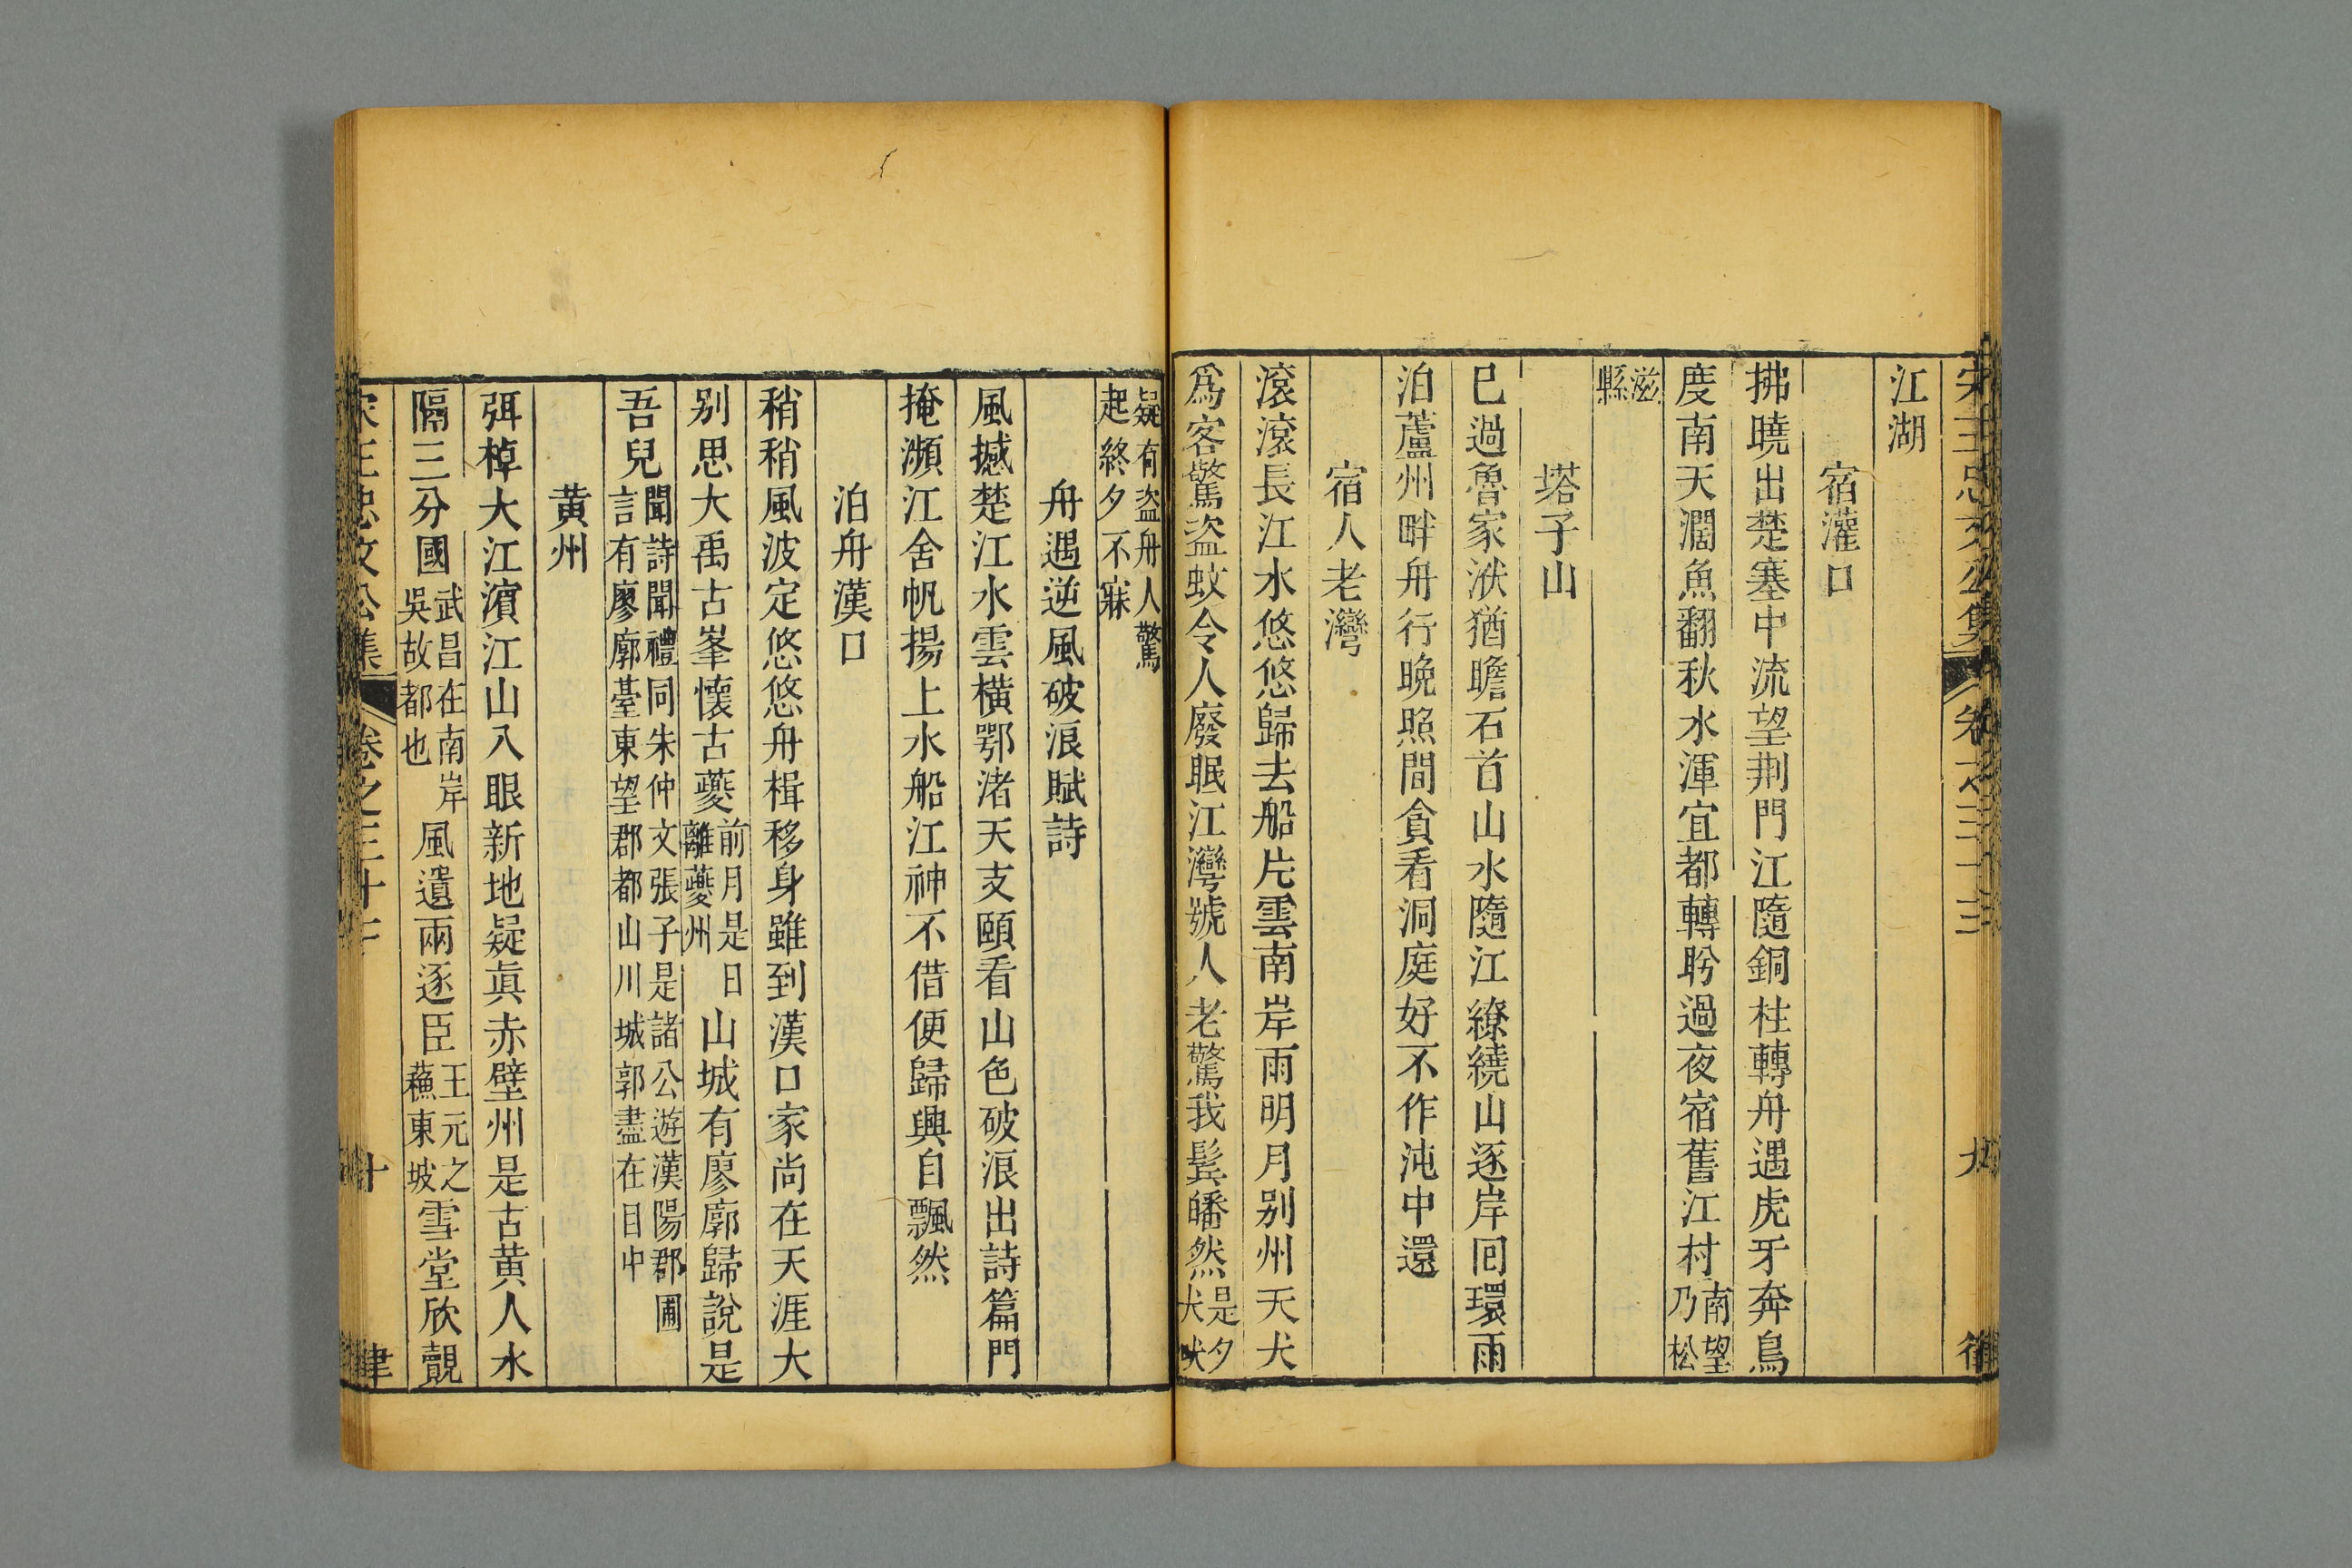 江湖
宿灌口
拂曉出楚塞中流望荆門江隨銅柱轉舟遇虎牙奔鳥
度南天濶魚翻秋水渾宜都轉盻過夜宿舊江村南望乃松
滋縣
塔子山
巳過魯家洑猶瞻石首山水隨江繚繞山逐岸囘環雨
泊蘆州畔舟行晚照間貪看洞庭好不作沌中還
宿人老灣
滾滾長江水悠悠歸去船片雲南岸雨明月别州天犬
爲客驚盜蚊令人廢眠江灣號人老驚我鬂皤然是夕犬吠
疑有盜舟人驚起終夕不寐
舟遇逆風破浪賦詩
風撼楚江水雲橫鄂渚天支頤看山色破浪出詩篇門
掩瀕江舍帆揚上水船江神不借便歸興自飄然
泊舟漢口
稍稍風波定悠悠舟楫移身雖到漢口家尚在天涯大
别思大禹古峯懷古夔前月是日離夔州山城有廖廓歸說是
吾兒聞詩聞禮同朱仲文張子是諸公遊漢陽郡圃言有廖廓臺東望郡都山川城郭盡在目中
黄州
弭棹大江濵江山入眼新地疑眞赤壁州是古黄人水
隔三分國武昌在南岸吳故都也風遺兩逐臣王元之蘓東坡雪堂欣覿